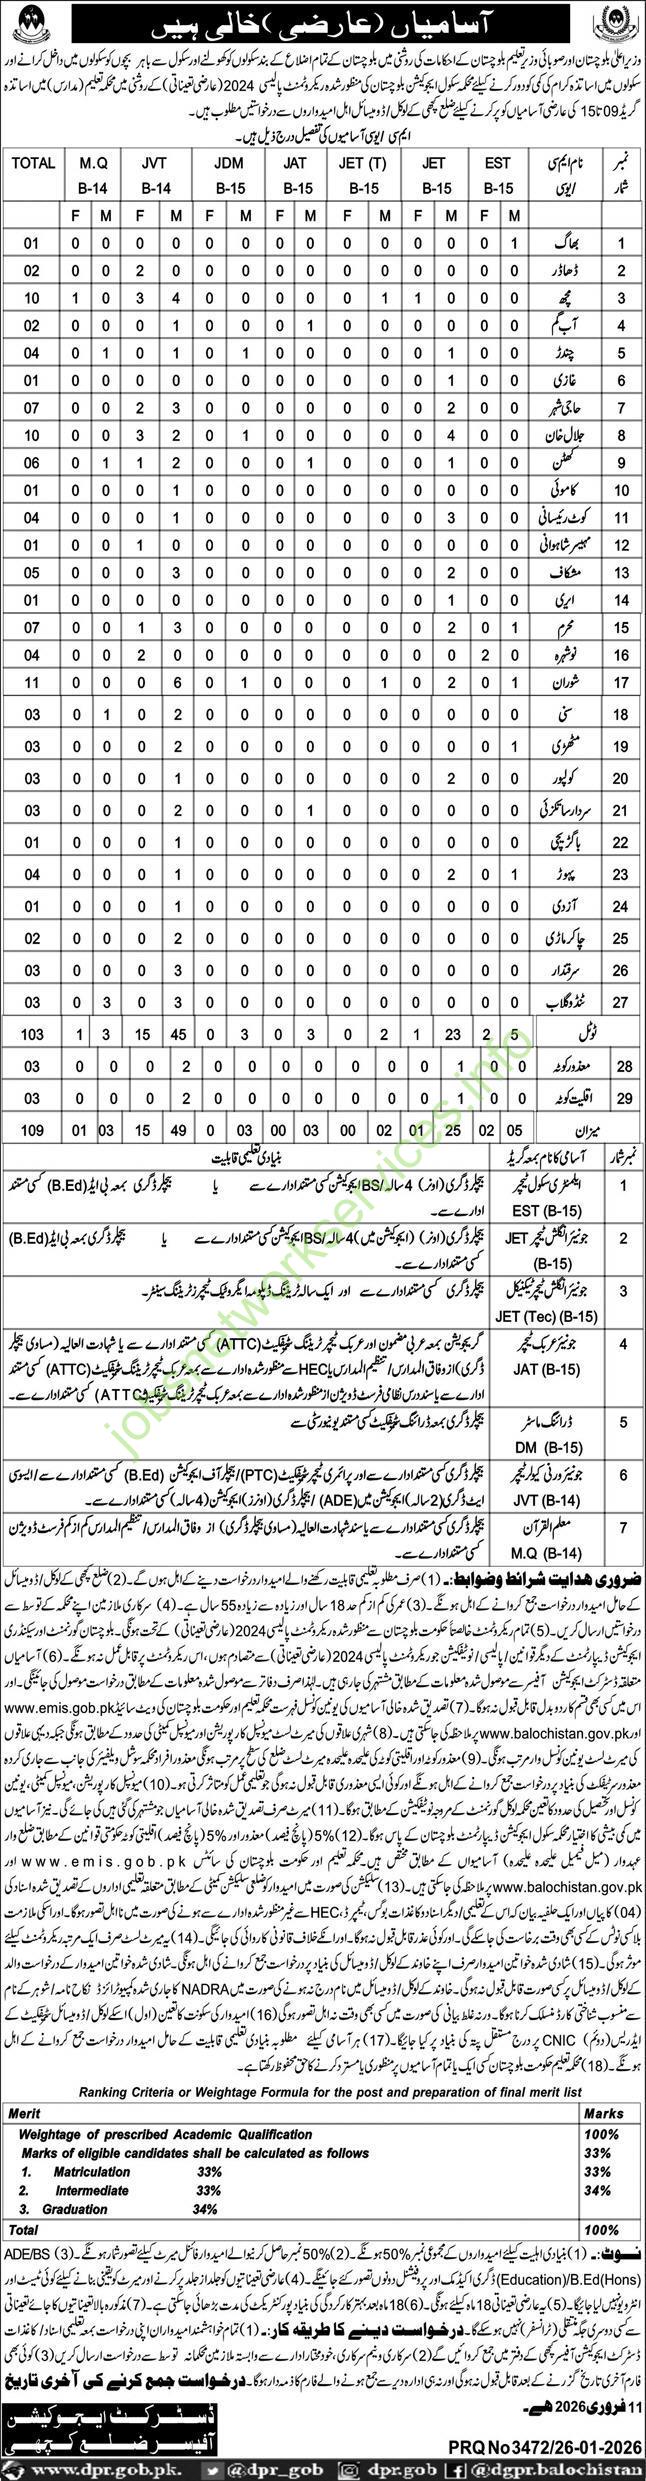 آسامیاں (عارضی) خالی ہیں
وزیر اعلیٰ بلوچستان اور صوبائی وزیر تعلیم بلوچستان کے احکامات کی روشنی میں بلوچستان کے تمام اضلاع کے بند سکولوں کو کھولنے اور سکول سے باہر بچوں کو سکولوں میں داخل کرانے اور
سکولوں میں اساتذہ کرام کی کمی کو دور کرنے کیلئے محکمہ سکول ایجوکیشن بلوچستان کی منظور شدہ ریکروٹمنٹ پالیسی 2024 (عارضی تعیناتی) کے روشنی میں محکمہ تعلیم (مدارس) میں اساتذہ
گریڈ 09 تا 15 کی عارضی آسامیاں کو پر کرنے کیلئے ضلع کچھی کے لوکل/ڈومیسائل اہل امیدواروں سے درخواستیں مطلوب ہیں۔
ایم سی / یوسی آسامیوں کی تفصیل درج ذیل ہیں۔
TOTAL M.Q JVT JDM JAT JET (T) JET EST نام ایم سی نمبر
B-14 B-14 B-15 B-15 B-15 B-15 B-15 / یوسی شمار
F M F M F M F M F M F M F M
01 0 0 0 0 0 0 0 0 0 0 0 0 0 1 بھاگ 1
02 0 0 2 0 0 0 0 0 0 0 0 0 0 0 ڈھاڈر 2
10 1 0 3 4 0 0 0 0 0 1 1 0 0 0 مچھ 3
02 0 0 0 1 0 0 0 1 0 0 0 0 0 0 آب گم 4
04 0 1 0 1 0 1 0 0 0 0 0 1 0 0 چندڑ 5
01 0 0 0 0 0 0 0 0 0 0 0 1 0 0 غازی 6
07 0 0 2 3 0 0 0 0 0 0 0 2 0 0 حاجی شہر 7
10 0 0 3 2 0 1 0 0 0 0 0 4 0 0 جلال خان 8
06 0 1 1 2 0 0 0 1 0 0 0 1 0 0 کھٹن 9
01 0 0 0 1 0 0 0 0 0 0 0 0 0 0 کاموئی 10
04 0 0 0 1 0 0 0 0 0 0 0 3 0 0 کوٹ رئیسانی 11
01 0 0 1 0 0 0 0 0 0 0 0 0 0 0 مہیسر شاہوانی 12
05 0 0 0 3 0 0 0 0 0 0 0 2 0 0 مشکاف 13
01 0 0 0 0 0 0 0 0 0 0 0 1 0 0 ایری 14
07 0 0 1 3 0 0 0 0 0 0 0 2 0 1 محرم 15
04 0 0 2 0 0 0 0 0 0 0 0 0 2 0 نوشہرہ 16
11 0 0 0 6 0 1 0 0 0 1 0 2 0 1 شوران 17
03 0 1 0 2 0 0 0 0 0 0 0 0 0 0 سنی 18
03 0 0 0 2 0 0 0 0 0 0 0 0 0 1 مٹھڑی 19
03 0 0 0 1 0 0 0 0 0 0 0 2 0 0 کولپور 20
03 0 0 0 2 0 0 0 1 0 0 0 0 0 0 سردار ساتکزئی 21
01 0 0 0 1 0 0 0 0 0 0 0 0 0 0 22
04 0 0 0 1 0 0 0 0 0 0 0 2 0 1 پہوڑ 23
01 0 0 0 1 0 0 0 0 0 0 0 0 0 0 آزدی 24
02 0 0 0 2 0 0 0 0 0 0 0 0 0 0 چاکر ماڑی 25
03 0 0 0 3 0 0 0 0 0 0 0 0 0 0 سرقندار 26
03 0 3 0 3 0 0 0 0 0 0 0 0 0 0 ٹنڈو گلاب 27
103 1 3 15 45 0 3 0 3 0 2 1 23 2 5 ٹوٹل
03 0 0 0 2 0 0 0 0 0 0 0 1 0 0 معذور کوٹہ 28
03 0 0 0 2 0 0 0 0 0 0 0 1 0 0 اقلیت کوٹہ 29
109 01 03 15 49 0 03 00 03 00 02 01 25 02 05 میزان
نمبر شمار آسامی کا نام بمعہ گریڈ بنیادی تعلیمی قابلیت
1 ایلیمنٹری سکول ٹیچر EST (B-15) بیچلر ڈگری (اونرز) 4 سالہ/BS ایجوکیشن کسی مستند ادارے سے یا بیچلر ڈگری بمعہ بی ایڈ (B.Ed) کسی مستند
ادارے سے۔
2 جونیئر انگلش ٹیچر JET (B-15) بیچلر ڈگری (اونرز) (ایجوکیشن میں) 4 سالہ/BS ایجوکیشن کسی مستند ادارے سے یا بیچلر ڈگری بمعہ بی ایڈ (B.Ed)
کسی مستند ادارے سے۔
3 جونیئر انگلش ٹیچر ٹیکنیکل JET (Tec) (B-15) بیچلر ڈگری کسی مستند ادارے سے اور ایک سالہ ٹریننگ ڈپلومہ ایگروٹیک ٹیچرز ٹریننگ سینٹر۔
4 جونیئر عربک ٹیچر JAT (B-15) گریجویشن بمعہ عربی مضمون اور عربک ٹیچر ٹریننگ سرٹیفکیٹ (ATTC) کسی مستند ادارے سے یا شہادت العالیہ (مساوی بیچلر
ڈگری) از وفاق المدارس/تنظیم المدارس یا HEC سے منظور شدہ ادارے سے بمعہ عربک ٹیچر ٹریننگ سرٹیفکیٹ (ATTC) کسی مستند
ادارے سے یا سند درس نظامی فرسٹ ڈویژن از منظور شدہ ادارے سے بمعہ عربک ٹیچر ٹریننگ سرٹیفکیٹ (ATTC) کسی مستند ادارے سے۔
5 ڈرائنگ ماسٹر DM (B-15) بیچلر ڈگری بمعہ ڈرائنگ سرٹیفکیٹ کسی مستند یونیورسٹی سے
6 جونیئر ورنی کیولر ٹیچر JVT (B-14) بیچلر ڈگری کسی مستند ادارے سے اور پرائمری ٹیچر سرٹیفکیٹ (PTC)/بیچلر آف ایجوکیشن (B.Ed) کسی مستند ادارے سے/ایسوسی
ایٹ ڈگری (2 سالہ) ایجوکیشن میں (ADE)/بیچلر ڈگری (اونرز) ایجوکیشن (4 سالہ) کسی مستند ادارے سے۔
7 معلم القرآن M.Q (B-14) بیچلر ڈگری کسی مستند ادارے سے یا سند شہادت العالیہ (مساوی بیچلر ڈگری) از وفاق المدارس/تنظیم المدارس کم از کم فرسٹ ڈویژن
کسی مستند ادارے سے۔
ضروری هدایت شرائط وضوابط:۔ (1) صرف مطلوبہ تعلیمی قابلیت رکھنے والے امیدوار درخواست دینے کے اہل ہوں گے۔ (2) ضلع کچھی کے لوکل/ڈومیسائل
کے حامل امیدوار درخواست جمع کروانے کے اہل ہونگے۔ (3) عمر کی کم از کم حد 18 سال اور زیادہ سے زیادہ 55 سال ہے۔ (4) سرکاری ملازمین اپنے محکمہ کے توسط سے
درخواستیں ارسال کریں۔ (5) تمام ریکروٹمنٹ خالصتاً حکومت بلوچستان سے منظور شدہ ریکروٹمنٹ پالیسی 2024 (عارضی تعیناتی) کے تحت ہونگی۔ بلوچستان گورنمنٹ اور سیکنڈری
ایجوکیشن ڈیپارٹمنٹ کے دیگر قوانین/پالیسی/نوٹیفکیشن جو ریکروٹمنٹ پالیسی 2024 (عارضی تعیناتی) سے متصادم ہوں، اس ریکروٹمنٹ پر قابل عمل نہ ہونگے۔ (6) آسامیاں
متعلقہ ڈسٹرکٹ ایجوکیشن آفیسر سے موصول شدہ معلومات کے مطابق مشتہر کی جا رہی ہیں۔ لہذا صرف دفاتر سے موصول شدہ معلومات کے مطابق درخواست موصول کی جائینگی۔ اور
اس میں کسی بھی قسم کا ردوبدل قابل قبول نہ ہوگا۔ (7) تصدیق شدہ خالی آسامیوں کی یونین کونسل فہرست محکمہ تعلیم اور حکومت بلوچستان کی ویب سائیڈ www.emis.gob.pk
اور www.balochistan.gov.pk پر ملاحظہ کی جاسکتی ہیں۔ (8) شہری علاقوں کی میرٹ لسٹ میونسپل کارپوریشن اور میونسپل کمیٹی کی حدود کے مطابق ہونگی جبکہ دیہی علاقوں
کی میرٹ لسٹ یونین کونسل وار مرتب ہونگی۔ (9) معذور کوٹہ اور اقلیتی کوٹہ کی علیحدہ علیحدہ میرٹ لسٹ ضلع کی سطح پر مرتب ہونگی معذور افراد محکمہ سوشل ویلفیئر کی جانب سے جاری کردہ
معذور سرٹیفکیٹ کی بنیاد پر درخواست جمع کروانے کے اہل ہونگے اور کوئی ایسی معذوری قابل قبول نہ ہوگی جو تعلیمی عمل کو متاثر کرتی ہو۔ (10) میونسپل کارپوریشن، میونسپل کمیٹی، یونین
کونسل اور تحصیل کی حدود کا تعین محکمہ لوکل گورنمنٹ کے مروجہ نوٹیفکیشن کے مطابق ہوگا۔ (11) میرٹ صرف تصدیق شدہ خالی آسامیاں جو مشتہر کی گئی ہیں کی جائے گی۔ نیز آسامیوں
میں کمی بیشی کا اختیار محکمہ سکول ایجوکیشن ڈیپارٹمنٹ بلوچستان کے پاس ہوگا۔ (12) 5% (پانچ فیصد) معذور اور 5% (پانچ فیصد) اقلیتی کوٹہ حکومتی قوانین کے مطابق ضلع وار
عہدہ وار (میل فیمیل علیحدہ علیحدہ) آسامیوں کے مطابق مختص ہیں۔ محکمہ تعلیم اور حکومت بلوچستان کی سائٹس www.emis.gob.pk اور
www.balochistan.gov.pk پر ملاحظہ کی جاسکتی ہیں۔ (13) سلیکشن کی صورت میں امیدوار کو ضلعی سلیکشن کمیٹی کے مطابق متعلقہ تعلیمی اداروں کے تصدیق شدہ اسناد کی
(04) کاپیاں اور ایک حلفیہ بیان کہ اس کے تعلیمی/دیگر اسناد و کاغذات بوگس، ٹیمپرڈ، HEC سے غیر منظور شدہ ادارے سے ہونے کی صورت میں نا اہل تصور ہوگا۔ اور اسکی ملازمت
بلا کسی نوٹس کے کسی بھی وقت برخاست کی جاسکے گی۔ اور کوئی عذر قابل قبول نہ ہوگا۔ اور اسکے خلاف قانونی کاروائی کی جائیگی۔ (14) یہ میرٹ لسٹ صرف ایک مرتبہ ریکروٹمنٹ کیلئے
موثر ہوگی۔ (15) شادی شدہ خواتین امیدوار صرف اپنے خاوند کے لوکل/ڈومیسائل کی بنیاد پر درخواست جمع کروانے کی اہل ہونگی۔ شادی شدہ خواتین امیدوار کے درخواست والد
کے لوکل/ڈومیسائل پر کسی صورت قابل قبول نہ ہوگی۔ خاوند کے لوکل/ڈومیسائل میں نام درج نہ ہونے کی صورت میں NADRA کا جاری شدہ کمپیوٹرائزڈ نکاح نامہ/شوہر کے نام
سے منسوب شناختی کارڈ منسلک کرنا ہوگا۔ ورنہ غلط بیانی کی صورت میں کسی بھی وقت نہ اہل تصور ہوگی (16) امیدوار کی سکونت کا تعین (اول) اسکے لوکل/ڈومیسائل سرٹیفکیٹ کے
ایڈریس (دوئم) CNIC پر درج مستقل پتہ کی بنیاد پر کیا جائیگا۔ (17) ہر آسامی کیلئے مطلوبہ بنیادی تعلیمی قابلیت کے حامل امیدوار درخواست جمع کروانے کے اہل
ہونگے۔ (18) محکمہ تعلیم حکومت بلوچستان کسی ایک یا تمام آسامیوں پر منظوری یا مسترد کرنے کا حق محفوظ رکھتا ہے۔
Ranking Criteria or Weightage Formula for the post and preparation of final merit list
Merit Marks
Weightage of prescribed Academic Qualification 100%
Marks of eligible candidates shall be calculated as follows 33%
1. Matriculation 33% 33%
2. Intermediate 33% 34%
3. Graduation 34%
Total 100%
نوٹ:۔ (1) بنیادی اہلیت کیلئے امیدواروں کے مجموعی نمبر 50% ہونگے۔ (2) 50% نمبر حاصل کرنیوالے امیدوار فائنل میرٹ کیلئے تصور شمار ہونگے۔ (3) ADE/BS
(Education)/B.Ed(Hons) ڈگری اکیڈمک اور پروفیشنل دونوں تصور کئے جائینگے۔ (4) عارضی تعیناتیوں کو جلد از جلد پر کرنے اور میرٹ کو یقینی بنانے کیلئے کوئی ٹیسٹ اور
انٹرویو نہیں لیا جائیگا۔ (5) یہ عارضی تعیناتی 18 ماہ کیلئے ہوگی۔ (6) 18 ماہ بعد بہتر کارکردگی کی بنیاد پر کنٹریکٹ کی مدت بڑھائی جاسکتی ہے۔ (7) مذکورہ بالا تعیناتیوں کا جائے تعیناتی
سے کسی دوسری جگہ منتقلی (ٹرانسفر) نہیں ہوسکے گا۔ درخواست دینے کا طریقہ کار:۔ (1) تمام خواہشمند امیدواران اپنی درخواست بمعہ تعلیمی اسناد/کاغذات
ڈسٹرکٹ ایجوکیشن آفیسر کچھی کے دفتر میں جمع کروائیں گے (2) سرکاری و نیم سرکاری، خود مختار ادارے سے وابستہ ملازمین محکمانہ توسط سے درخواست ارسال کریں (3) کوئی بھی
فارم آخری تاریخ گزرنے کے بعد قابل قبول نہ ہوگی اور نہ ہی ادارہ دیر سے جمع ہونے والے فارم کا ذمہ دار ہوگا۔ درخواست جمع کرنے کی آخری تاریخ
11 فروری 2026 ہے۔
ڈسٹرکٹ ایجوکیشن
آفیسر ضلع کچھی
PRQ No 3472/26-01-2026
www.dpr.gob.pk. @dpr_gob dpr.gob @dgpr.balochistan
jobsnetworkservices.info